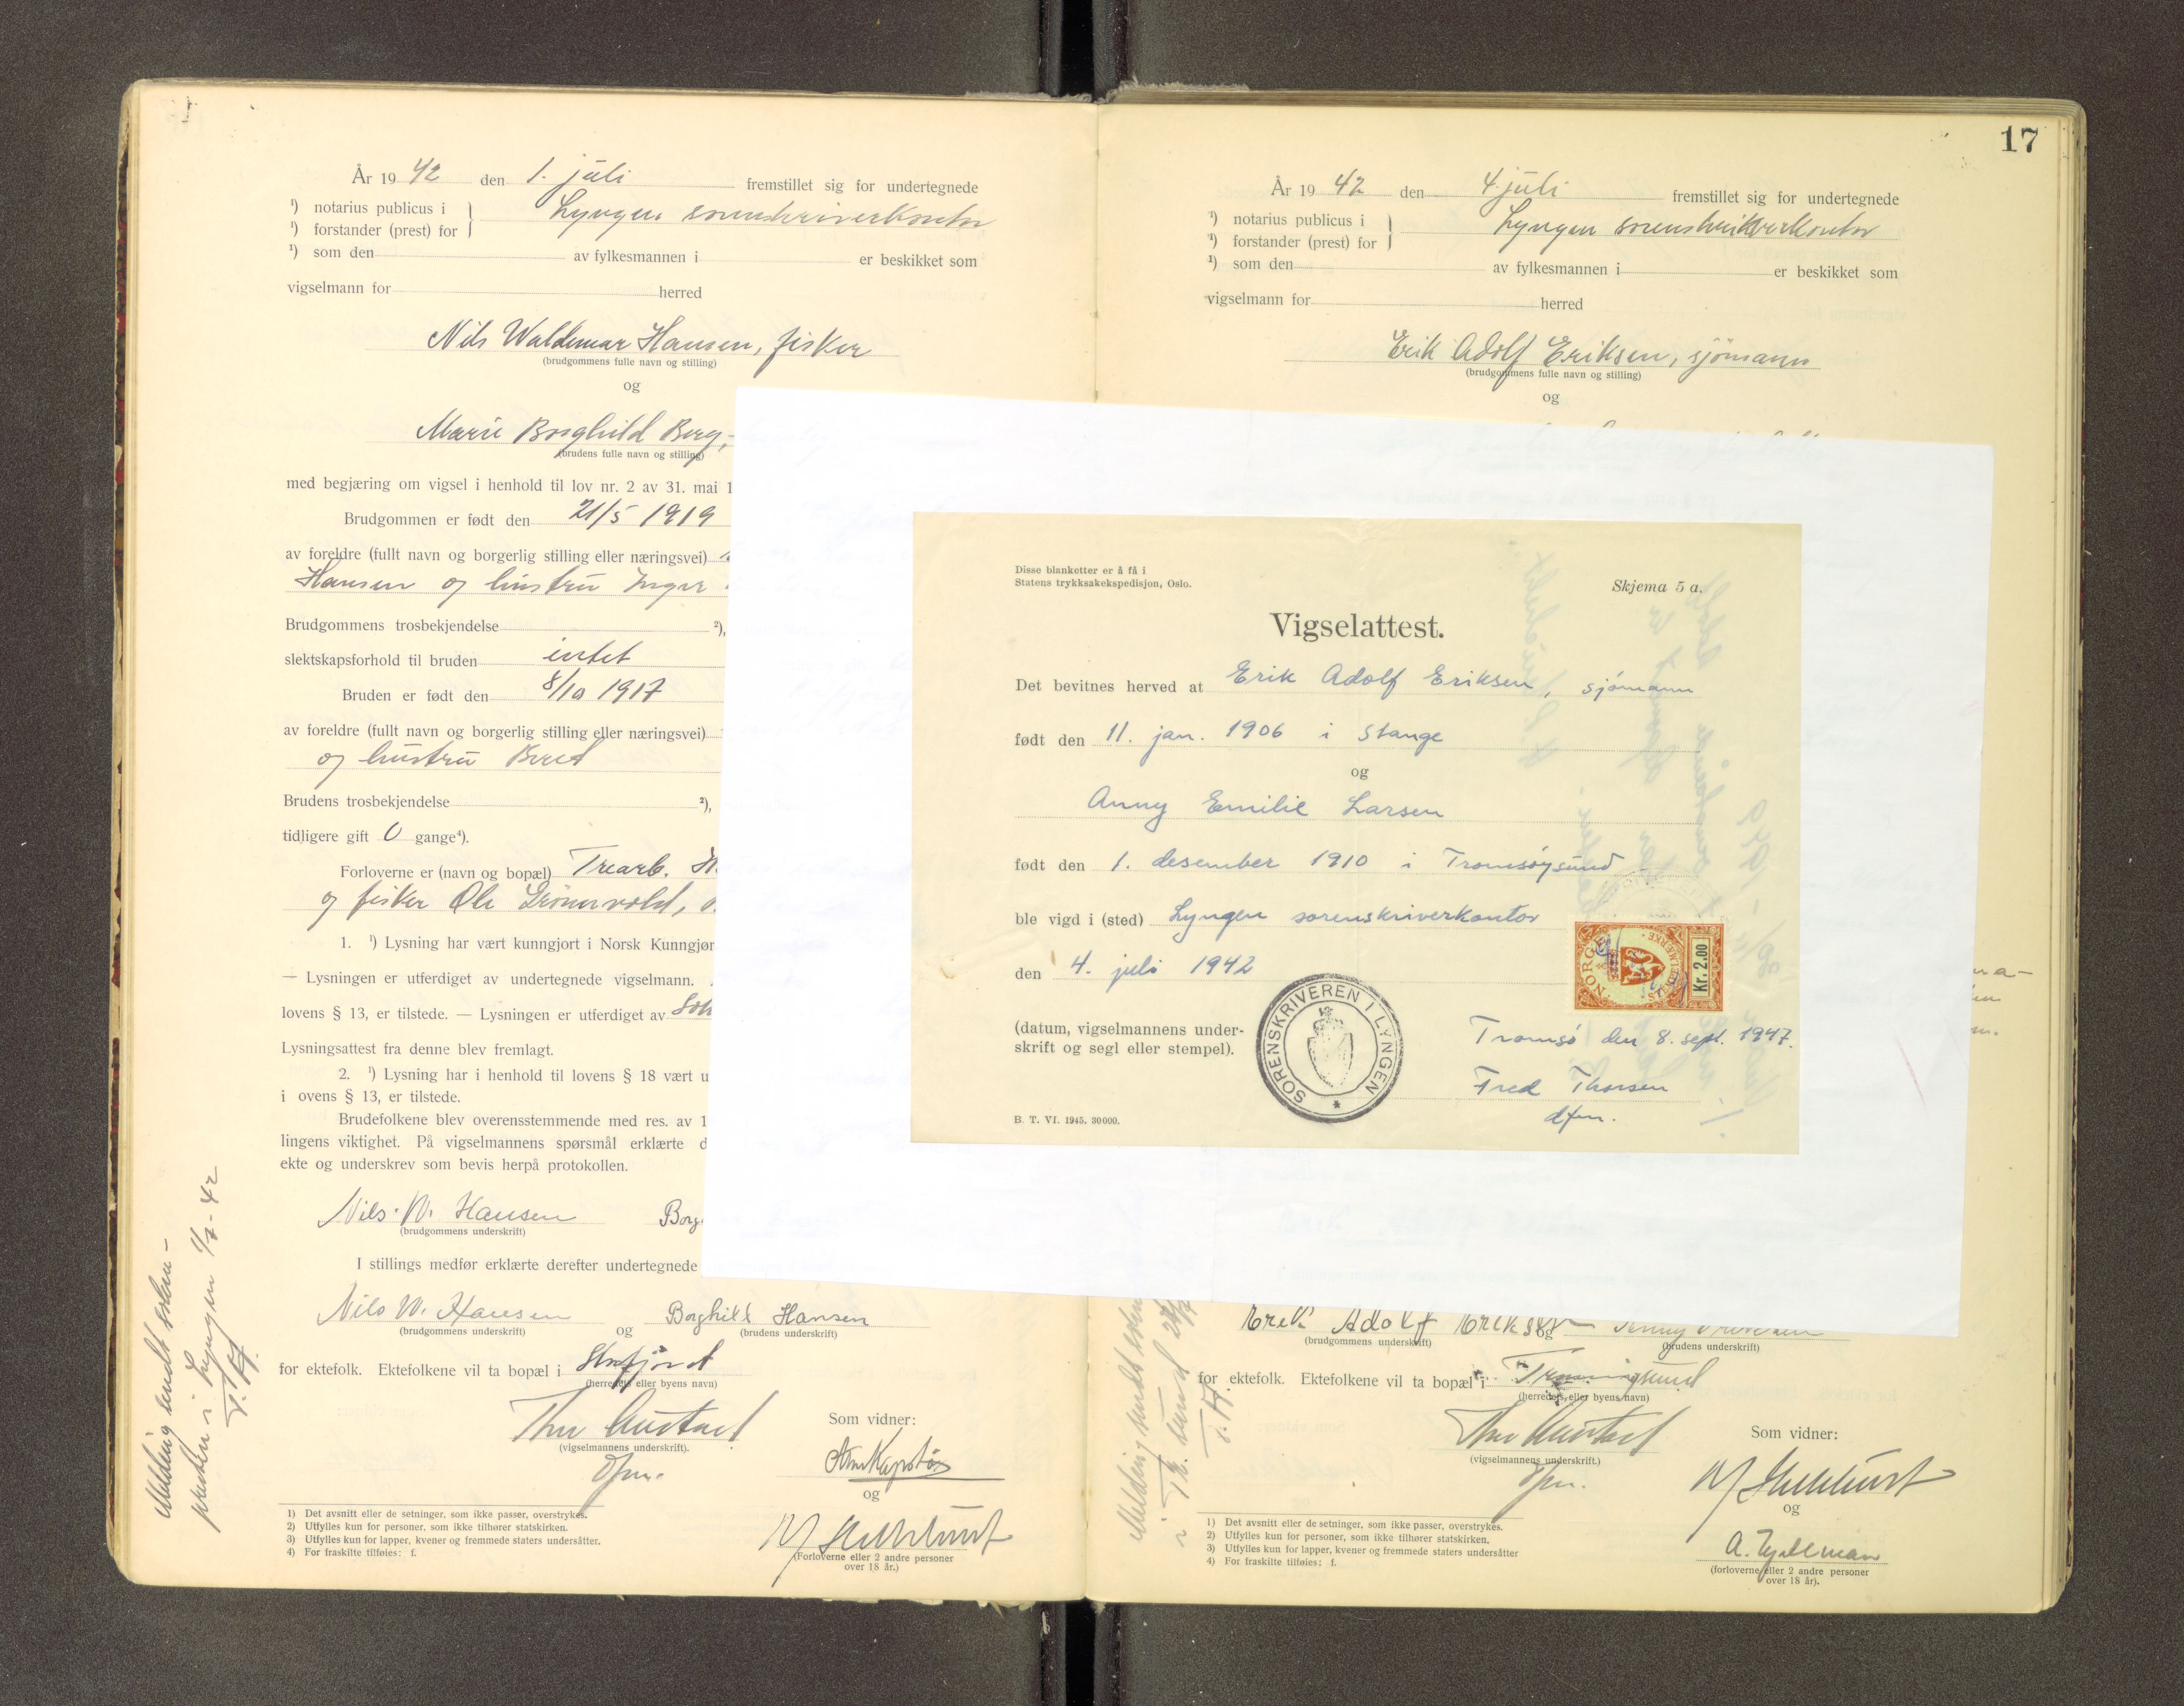 År 19 42 den 1. juli fremstillet sig for undertegnede
¹) notarius publicus i } Lyngen sorenskriverkontor
¹) forstander (prest) for
¹) som den av fylkesmannen i er beskikket som
vigselmann for herred
Nils Waldemar Hansen, fisker
(brudgommens fulle navn og stilling)
og
Marie Borghild Berg,
(brudens fulle navn og stilling)
med begjæring om vigsel i henhold til lov nr. 2 av 31. mai 1
Brudgommen er født den 21/5 1919
av foreldre (fullt navn og borgerlig stilling eller næringsvei)
Hansen og hustru Inger
Brudgommens trosbekjendelse ²),
slektskapsforhold til bruden intet
Bruden er født den 8/10 1917
av foreldre (fullt navn og borgerlig stilling eller næringsvei)
og hustru Berit
Brudens trosbekjendelse ²),
tidligere gift 0 gange⁴).
Forloverne er (navn og bopæl) Trearb. H.
og fisker Ole Grönnvold,
1. ¹) Lysning har vært kunngjort i Norsk Kunngjør
— Lysningen er utferdiget av undertegnede vigselmann.
lovens § 13, er tilstede. — Lysningen er utferdiget av
Lysningsattest fra denne blev fremlagt.
2. ¹) Lysning har i henhold til lovens § 18 vært u
i ovens § 13, er tilstede.
Brudefolkene blev overensstemmende med res. av 1
lingens viktighet. På vigselmannens spørsmål erklærte d
ekte og underskrev som bevis herpå protokollen.
Nils. W. Hansen Borg
(brudgommens underskrift)
I stillings medfør erklærte derefter undertegnede
Nils W. Hansen og Borghild Hansen
(brudgommens underskrift) (brudens underskrift)
for ektefolk. Ektefolkene vil ta bopæl i
(herredets eller byens navn)
Thor Austad
(vigselmannens underskrift).
dfm.
Som vidner:
og
(Forloverne eller 2 andre personer
over 18 år.)
1) Det avsnitt eller de setninger, som ikke passer, overstrykes.
2) Utfylles kun for personer, som ikke tilhører statskirken.
3) Utfylles kun for lapper, kvener og fremmede staters undersåtter.
4) For fraskilte tilføies: f.
Melding sendt sokne-
presten i Lyngen 1/7-42
T.A.
17
År 19 42 den 4. juli fremstillet sig for undertegnede
¹) notarius publicus i } Lyngen sorenskriverkontor
¹) forstander (prest) for
¹) som den av fylkesmannen i er beskikket som
vigselmann for herred
Erik Adolf Eriksen, sjömann
(brudgommens fulle navn og stilling)
og
Disse blanketter er å få i
Statens trykksakekspedisjon, Oslo.
Skjema 5 a.
Vigselattest.
Det bevitnes herved at Erik Adolf Eriksen, sjömann
født den 11. jan. 1906 i Stange
og
Anny Emilie Larsen
født den 1. desember 1910 i Tromsøysund
ble vigd i (sted) Lyngen sorenskriverkontor
den 4. juli 1942
NORGE
STEMPELMERKE
Kr. 2.00
(datum, vigselmannens under-
skrift og segl eller stempel).
SORENSKRIVEREN I LYNGEN
Tromsö den 8. sept. 1947.
Fred Thorsen
dfm.
B. T. VI. 1945. 30000.
Erik Adolf Eriksen og Anny Eriksen
(brudgommens underskrift) (brudens underskrift)
for ektefolk. Ektefolkene vil ta bopæl i Tromsøysund
(herredets eller byens navn)
Thor Austad
(vigselmannens underskrift.)
dfm.
Som vidner:
og
A. Tjellman
(forloverne eller 2 andre personer
over 18 år).
1) Det avsnitt eller de setninger, som ikke passer, overstrykes.
2) Utfylles kun for personer, som ikke tilhører statskirken.
3) Utfylles kun for lapper, kvener og fremmede staters undersåtter
4) For fraskilte tilføies: f.
Melding sendt
T.A.